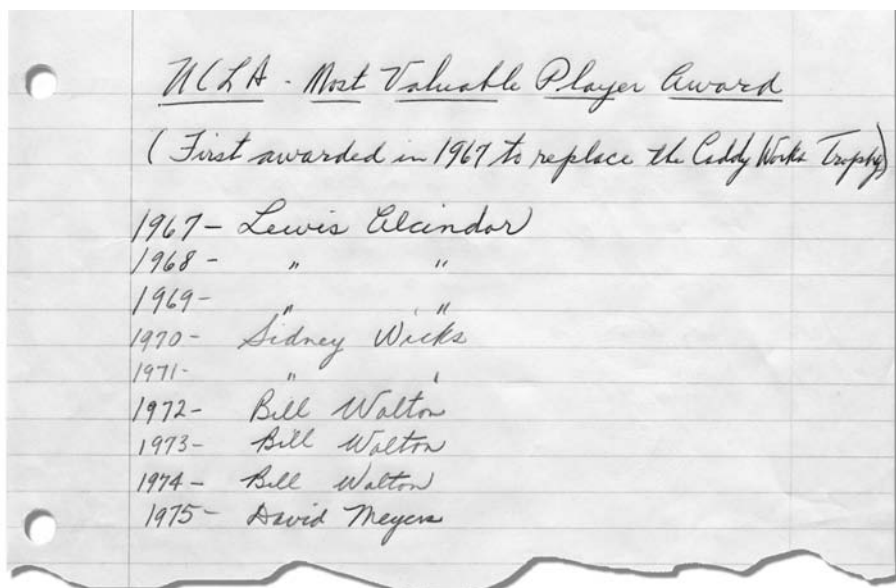 UCLA - Most Valuable Player Award
(First awarded in 1967 to replace the Caddy Works Trophy)
1967 - Lewis Alcindor
1968 - " "
1969 - " "
1970 - Sidney Wicks
1971 - " "
1972 - Bill Walton
1973 - Bill Walton
1974 - Bill Walton
1975 - David Meyers